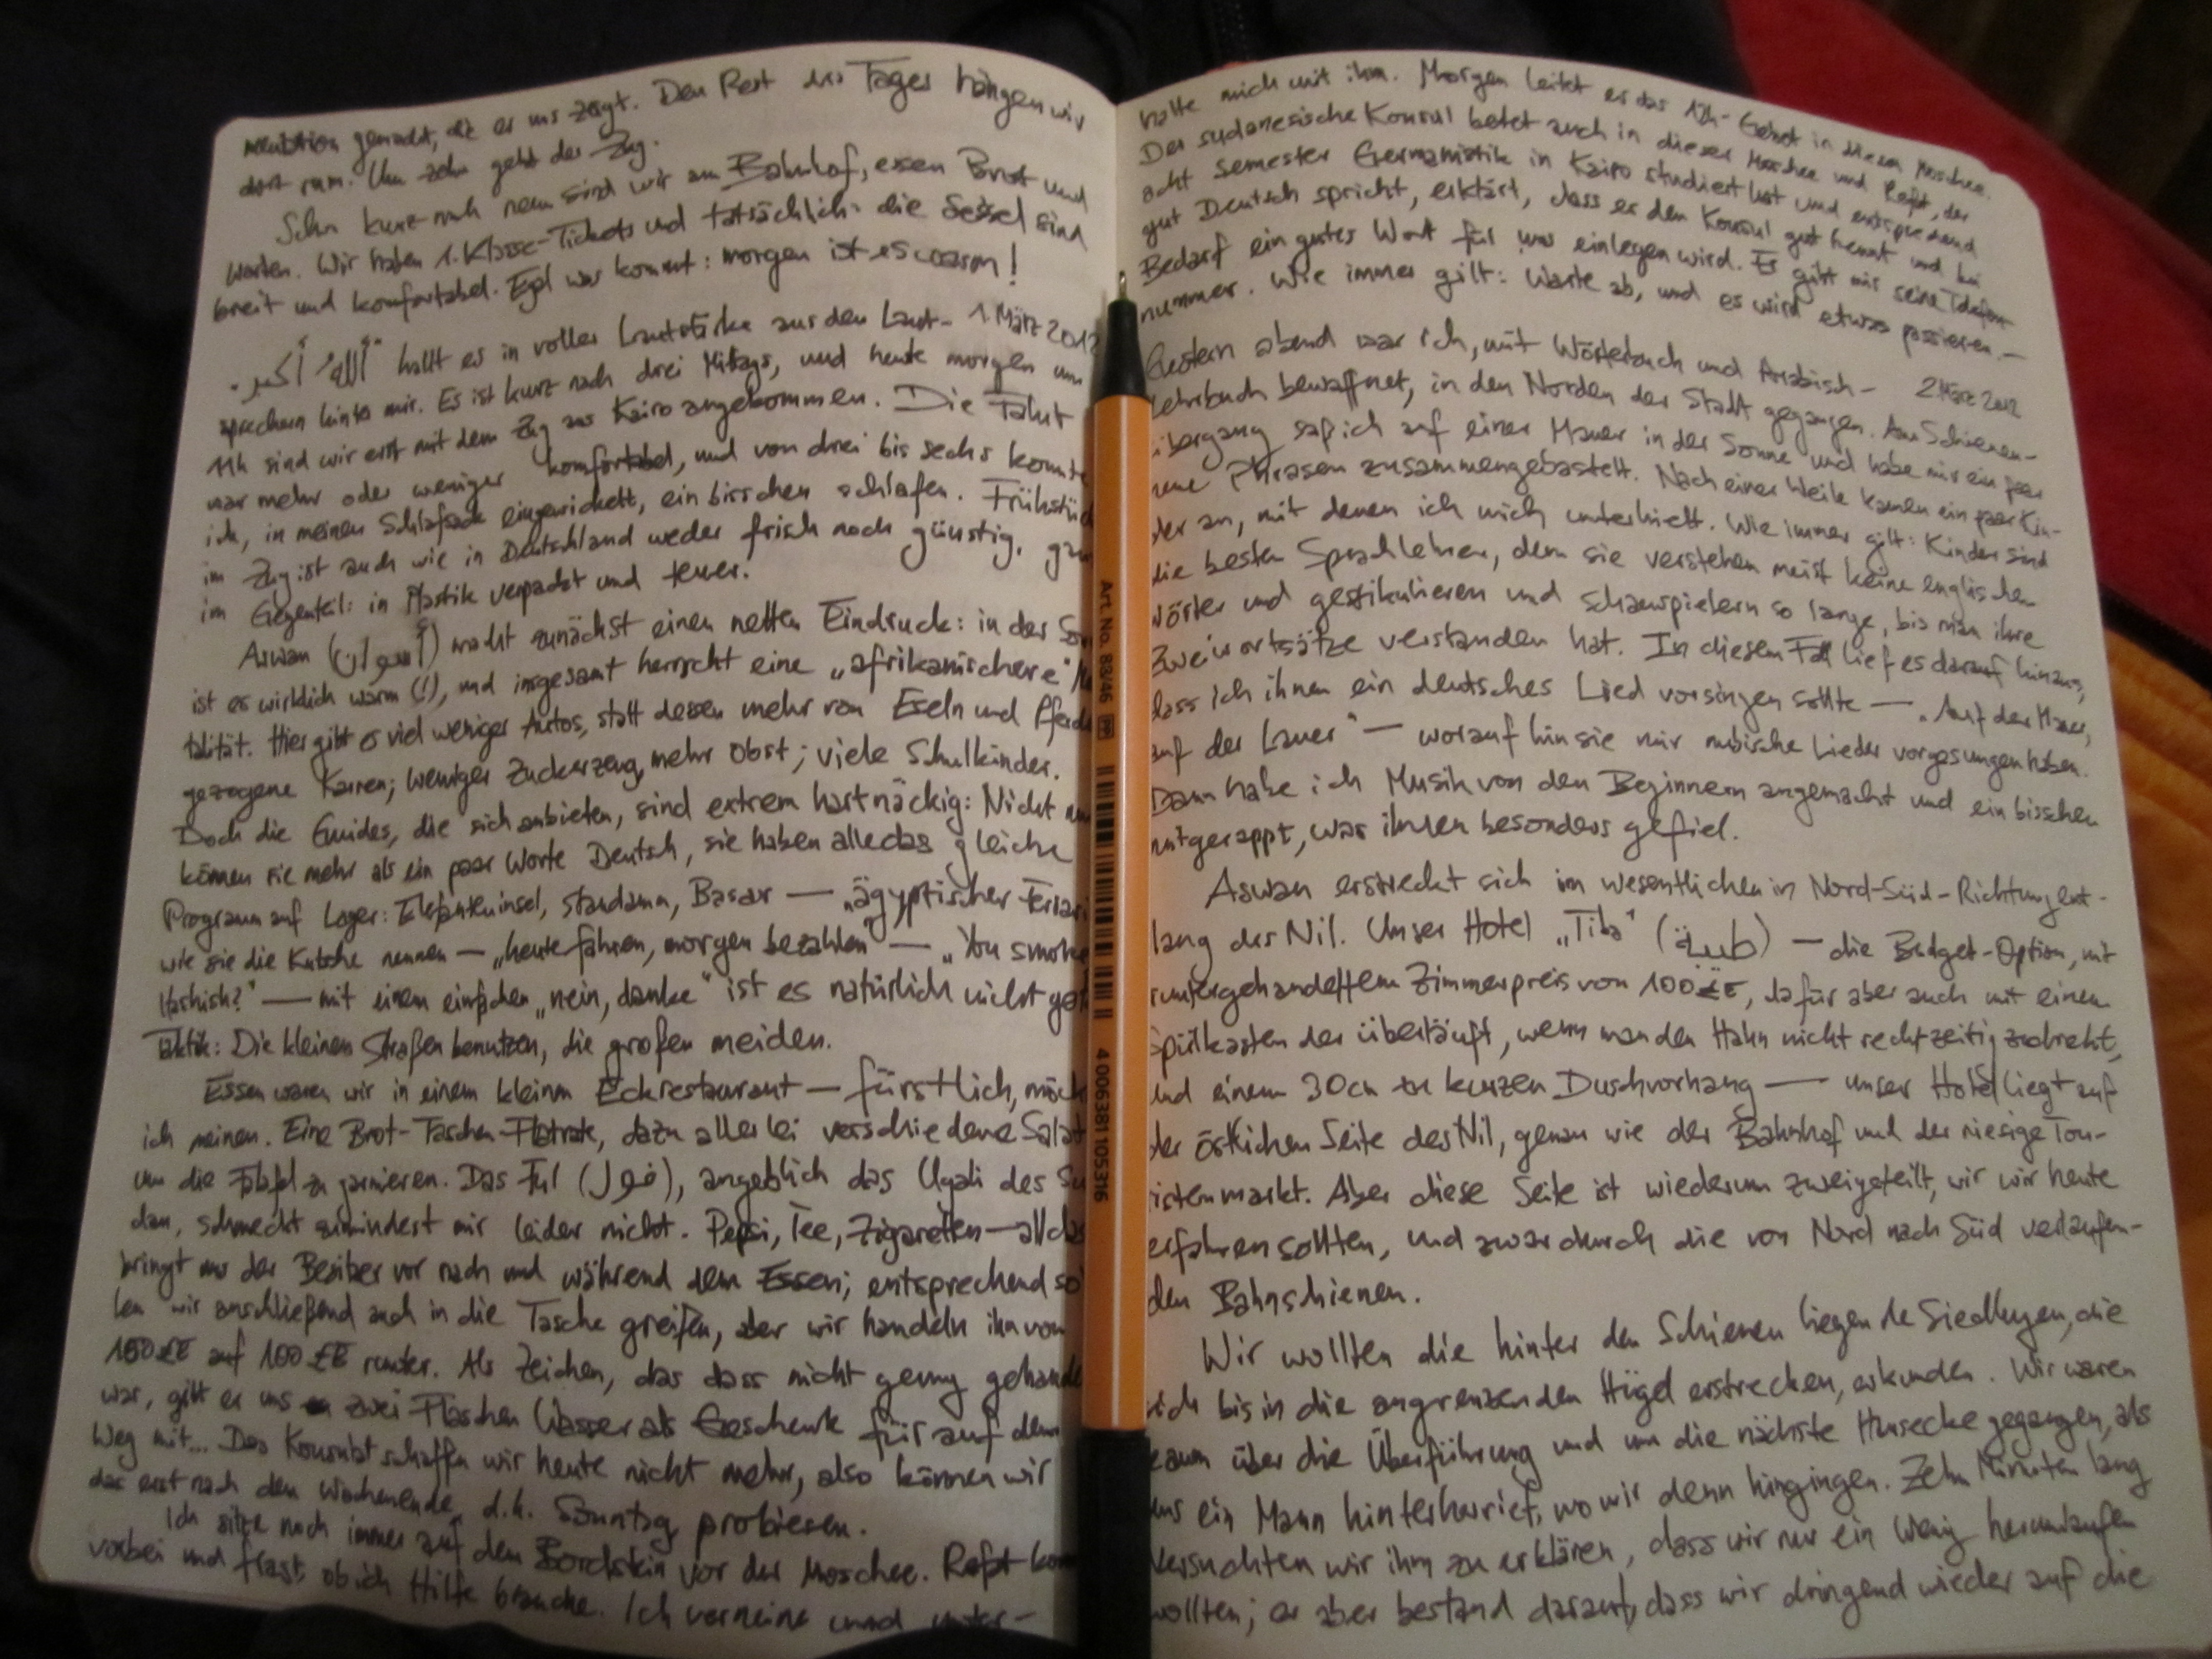 gemacht, die er uns zeigt. Den Rest des Tages hängen wir
dort rum. Um zehn geht der Zug.
Schon kurz nach neun sind wir am Bahnhof, essen Brot und
warten. Wir haben 1. Klasse-Tickets und tatsächlich: die Sessel sind
breit und komfortabel. Egal was kommt: morgen ist es warm!
1. März 2012
"أللهُ أكبر" hallt es in voller Lautstärke aus den Laut-
sprechern hinter mir. Es ist kurz nach drei Mittags, und heute morgen um
11h sind wir erst mit dem Zug aus Kairo angekommen. Die Fahrt
war mehr oder weniger komfortabel, und von drei bis sechs konnte
ich, in meinen Schlafsack eingewickelt, ein bisschen schlafen. Frühstück
im Zug ist auch wie in Deutschland weder frisch noch günstig,
im Gegenteil: in Plastik verpackt und teuer.
Aswan (أسوان) macht zunächst einen netten Eindruck: in der
ist es wirklich warm (!), und insgesamt herrscht eine „afrikanischere"
talität. Hier gibt es viel weniger Autos, statt dessen mehr von Eseln und Pferde
gezogene Karren; weniger Zuckerzeug, mehr Obst; viele Schulkinder.
Doch die Guides, die sich anbieten, sind extrem hartnäckig: Nicht
können sie mehr als ein paar Worte Deutsch, sie haben alle das gleiche
Programm auf Lager: Elefanteninsel, Staudamm, Basar — „ägyptischer Ferrari
wie sie die Kutsche nennen — „heute fahren, morgen bezahlen" — „You smoke
Hashish?" — mit einem einfachen „nein, danke" ist es natürlich nicht
Taktik: Die kleinen Straßen benutzen, die großen meiden.
Essen waren wir in einem kleinen Eckrestaurant — fürstlich,
ich meinen. Eine Brot-Taschen-Flatrate, dazu allerlei verschiedene Salat
um die Falafel zu garnieren. Das Ful (فول), angeblich das Ugali des Su
dan, schmeckt zumindest mir leider nicht. Pepsi, Tee, Zigaretten — all das
bringt uns der Besitzer vor nach und während dem Essen; entsprechend
len wir anschließend auch in die Tasche greifen, aber wir handeln ihn von
£E auf 100 £E runter. Als Zeichen, das dass nicht genug gehandelt
war, gibt er uns zwei Flaschen Wasser als Geschenk für auf den
Weg mit... Das Konsulat schaffen wir heute nicht mehr, also können wir
das erst nach dem Wochenende, d.h. Sonntag probieren.
Ich sitze noch immer auf dem Bordstein vor der Moschee. Refat
vorbei und fragt, ob ich Hilfe brauche. Ich verneine und unter-
halte mich mit ihm. Morgen leitet er das Gebet in dieser Moschee.
Der sudanesische Konsul betet auch in dieser Moschee und Refat, der
acht Semester Germanistik in Kairo studiert hat und entsprechend
gut Deutsch spricht, erklärt, dass er den Konsul gut kennt und bei
Bedarf ein gutes Wort für uns einlegen wird. Er gibt mir seine Telefon-
nummer. Wie immer gilt: Warte ab, und es wird etwas passieren. —
2. März 2012
Gestern abend war ich, mit Wörterbuch und Arabisch-
Lehrbuch bewaffnet, in den Norden der Stadt gegangen. Am Schienen-
übergang saß ich auf einer Mauer in der Sonne und habe mir ein paar
neue Phrasen zusammengebastelt. Nach einer Weile kamen ein paar Kin-
der an, mit denen ich mich unterhielt. Wie immer gilt: Kinder sind
die besten Sprachlehrer, denn sie verstehen meist keine englischen
Wörter und gestikulieren und schauspielern so lange, bis man ihre
Zweiwortsätze verstanden hat. In diesem Fall lief es darauf hinaus,
dass ich ihnen ein deutsches Lied vorsingen sollte — „Auf der Mauer,
auf der Lauer" — worauf hin sie mir nubische Lieder vorgesungen haben.
Dann habe ich Musik von den Beginnern angemacht und ein bisschen
mitgerappt, was ihnen besonders gefiel.
Aswan erstreckt sich im wesentlichen in Nord-Süd-Richtung ent-
lang des Nil. Unser Hotel „Tiba" (طيبة) — die Budget-Option, mit
runtergehandeltem Zimmerpreis von 100 £E, dafür aber auch mit einem
Spülkasten der überläuft, wenn man den Hahn nicht rechtzeitig zudreht,
und einem 30cm zu kurzen Duschvorhang — unser Hotel liegt auf
der östlichen Seite des Nil, genau wie der Bahnhof und der riesige Tou-
ristenmarkt. Aber diese Seite ist wiederum zweigeteilt, wir wir heute
erfahren sollten, und zwar durch die von Nord nach Süd verlaufen-
den Bahnschienen.
Wir wollten die hinter den Schienen liegende Siedlungen, die
sich bis in die angrenzenden Hügel erstrecken, erkunden. Wir waren
kaum über die Überführung und um die nächste Hausecke gegangen, als
uns ein Mann hinterherrief, wo wir denn hingingen. Zehn Minuten lang
versuchten wir ihm zu erklären, dass wir nur ein wenig herumlaufen
wollten; er aber bestand darauf, dass wir dringend wieder auf die
Art. No. 88/46
4 006381 105316